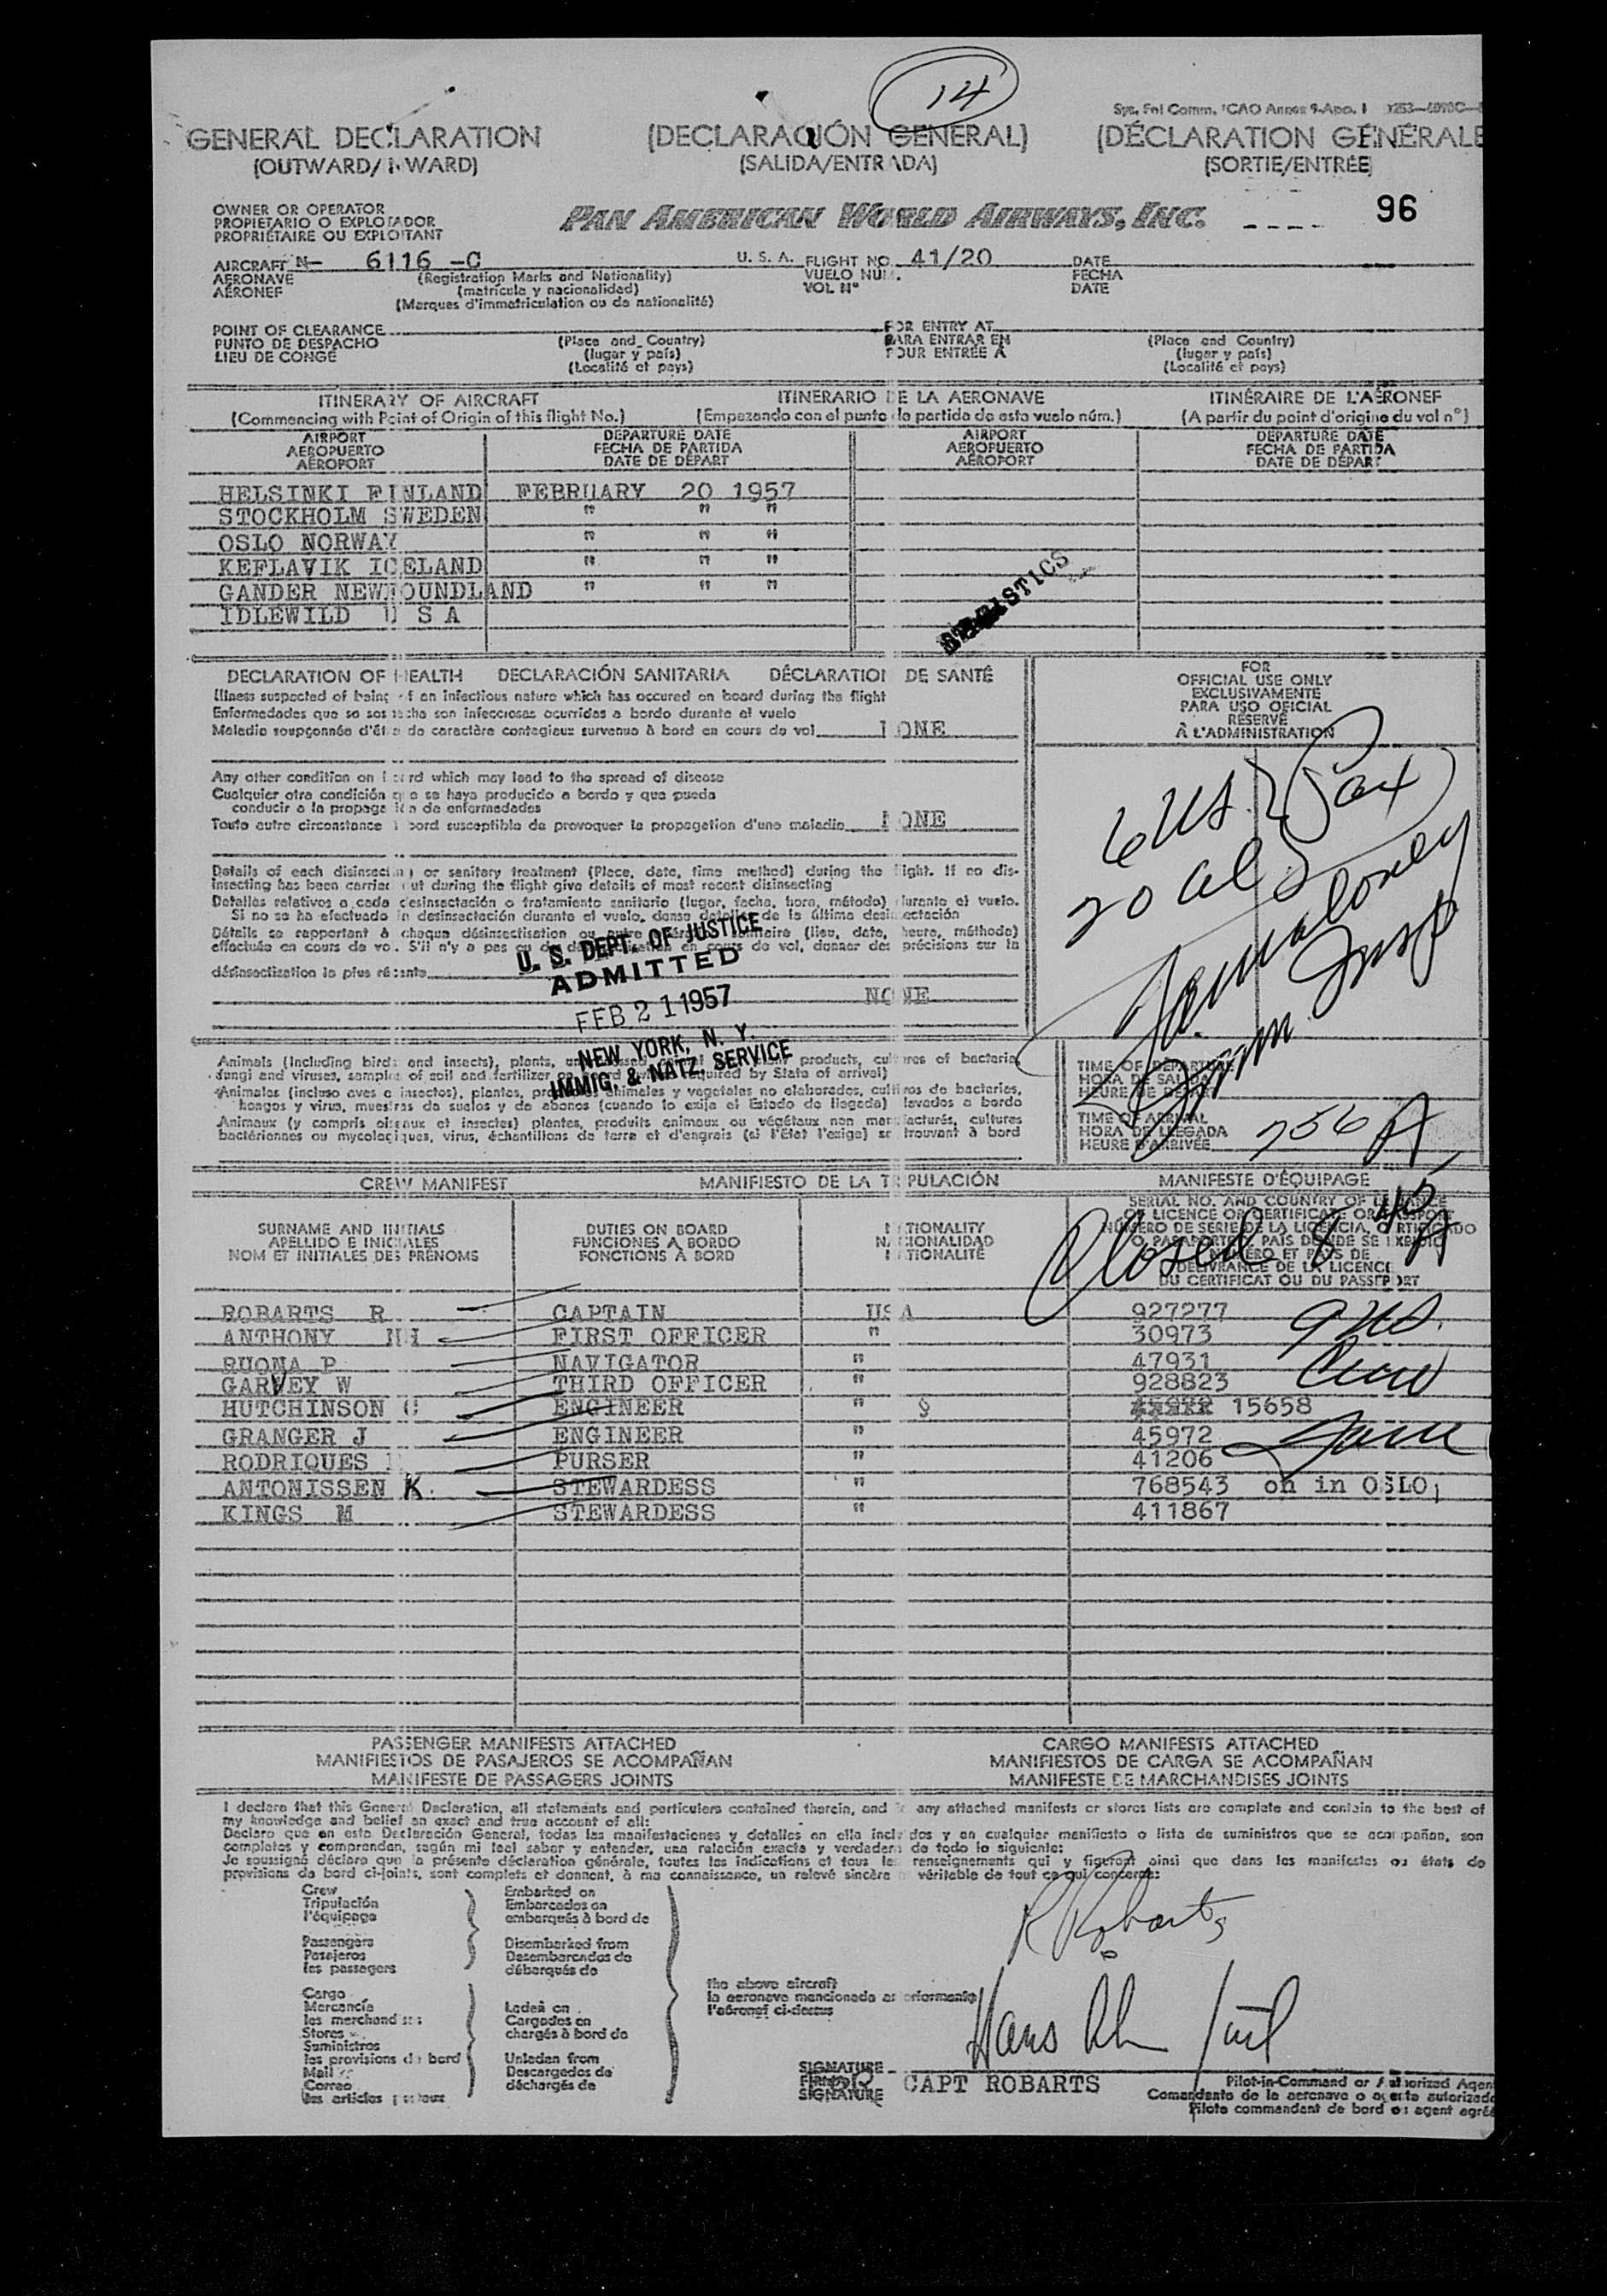 14
Sys. Fol Comm. ICAO Annex 9-App. 1
GENERAL DECLARATION (DECLARACIÓN GENERAL) (DÉCLARATION GÉNÉRALE
(OUTWARD/INWARD) (SALIDA/ENTRADA) (SORTIE/ENTRÉE)
OWNER OR OPERATOR
PROPIETARIO O EXPLOTADOR
PROPRIÉTAIRE OU EXPLOITANT
PAN AMERICAN WORLD AIRWAYS, INC. 96
AIRCRAFT N- 6116 -C U. S. A. FLIGHT NO. 41/20 DATE
AERONAVE (Registration Marks and Nationality) VUELO NÚM. FECHA
AÉRONEF (matrícula y nacionalidad) VOL Nº DATE
(Marques d'immatriculation ou de nationalité)
POINT OF CLEARANCE FOR ENTRY AT
PUNTO DE DESPACHO (Place and Country) PARA ENTRAR EN (Place and Country)
LIEU DE CONGÉ (lugar y país) POUR ENTRÉE À (lugar y país)
(Localité et pays) (Localité et pays)
ITINERARY OF AIRCRAFT ITINERARIO DE LA AERONAVE ITINÉRAIRE DE L'AÉRONEF
(Commencing with Point of Origin of this flight No.) (Empezando con el punto de partida de este vuelo núm.) (A partir du point d'origine du vol n°)
AIRPORT DEPARTURE DATE AIRPORT DEPARTURE DATE
AEROPUERTO FECHA DE PARTIDA AEROPUERTO FECHA DE PARTIDA
AÉROPORT DATE DE DÉPART AÉROPORT DATE DE DÉPART
HELSINKI FINLAND FEBRUARY 20 1957
STOCKHOLM SWEDEN " " "
OSLO NORWAY " " "
KEFLAVIK ICELAND " " "
GANDER NEWFOUNDLAND " " "
IDLEWILD U S A
STATISTICS
DECLARATION OF HEALTH DECLARACIÓN SANITARIA DÉCLARATION DE SANTÉ
Illness suspected of being of an infectious nature which has occured on board during the flight
Enfermedades que se sospecha son infecciosas ocurridas a bordo durante el vuelo
Maladie soupçonnée d'être de caractère contagieux survenue à bord en cours de vol NONE
Any other condition on board which may lead to the spread of disease
Cualquier otra condición que se haya producido a bordo y que pueda
conducir a la propagación de enfermedades
Toute autre circonstance à bord susceptible de provoquer la propagation d'une maladie NONE
Details of each disinsecting or sanitary treatment (Place, date, time method) during the flight. If no dis-
insecting has been carried out during the flight give details of most recent disinsecting
Detalles relativos a cada desinsectación o tratamiento sanitario (lugar, fecha, hora, método) durante el vuelo.
Si no se ha efectuado la desinsectación durante el vuelo, dense detalles de la última desinsectación
Détails se rapportant à chaque désinsectisation ou autre sanitaire (lieu, date, heure, méthode)
effectuée en cours de vol. S'il n'y a pas eu de en cours de vol, donner des précisions sur la
désinsectisation la plus récente
NONE
U. S. DEPT. OF JUSTICE
ADMITTED
FEB 21 1957
NEW YORK, N. Y.
IMMIG. & NATZ. SERVICE
FOR
OFFICIAL USE ONLY
EXCLUSIVAMENTE
PARA USO OFICIAL
RÉSERVÉ
À L'ADMINISTRATION
6 US. } Pax
20 al
Insp
Imm
Animals (Including birds and insects), plants, products, cultures of bacteria,
fungi and viruses, samples of soil and fertilizer required by State of arrival)
Animales (incluso aves e insectos), plantas, animales y vegetales no elaborados, cultivos de bacterias,
hongos y virus, muestras de suelos y de abonos (cuando lo exija el Estado de llegada) levados a bordo
Animaux (y compris oiseaux et insectes) plantes, produits animaux ou végétaux non manufacturés, cultures
bactériennes ou mycologiques, virus, échantillons de terre et d'engrais (si l'État l'exige) se trouvant à bord
TIME OF DEPARTURE
HORA DE SALIDA
HEURE DE DÉPART
TIME OF ARRIVAL
HORA DE LLEGADA
HEURE D'ARRIVÉE 756 A
CREW MANIFEST MANIFIESTO DE LA TRIPULACIÓN MANIFESTE D'ÉQUIPAGE
SURNAME AND INITIALS
APELLIDO E INICIALES
NOM ET INITIALES DES PRÉNOMS
DUTIES ON BOARD
FUNCIONES A BORDO
FONCTIONS À BORD
NATIONALITY
NACIONALIDAD
NATIONALITÉ
SERIAL NO. AND COUNTRY OF ISSUANCE
OF LICENCE OR CERTIFICATE OR PASSPORT
NÚMERO DE SERIE DE LA LICENCIA, CERTIFICADO
O PASAPORTE Y PAÍS DONDE SE EXPIDIÓ
NUMÉRO ET PAYS DE
DÉLIVRANCE DE LA LICENCE
DU CERTIFICAT OU DU PASSEPORT
Closed 8 45 A
ROBARTS R CAPTAIN USA 927277 9 US.
ANTHONY FIRST OFFICER " 30973
BUONA P NAVIGATOR " 47931 Crew
GARVEY W THIRD OFFICER " 928823
HUTCHINSON ENGINEER " § 15658
GRANGER J ENGINEER " 45972
RODRIQUES PURSER " 41206
ANTONISSEN K. STEWARDESS " 768543 on in OSLO
KINGS M STEWARDESS " 411867
PASSENGER MANIFESTS ATTACHED CARGO MANIFESTS ATTACHED
MANIFIESTOS DE PASAJEROS SE ACOMPAÑAN MANIFIESTOS DE CARGA SE ACOMPAÑAN
MANIFESTE DE PASSAGERS JOINTS MANIFESTE DE MARCHANDISES JOINTS
I declare that this General Declaration, all statements and particulars contained therein, and in any attached manifests or stores lists are complete and contain to the best of
my knowledge and belief an exact and true account of all:
Declaro que en esta Declaración General, todas las manifestaciones y detalles en ella incluidos y en cualquier manifiesto o lista de suministros que se acompañan, son
completos y comprenden, según mi leal saber y entender, una relación exacta y verdadera de todo lo siguiente:
Je soussigné déclare que la présente déclaration générale, toutes les indications et tous les renseignements qui y figurent ainsi que dans les manifestes ou états de
provisions de bord ci-joints, sont complets et donnent, à ma connaissance, un relevé sincère et véritable de tout ce qui concerne:
Crew
Tripulación
l'équipage
Passengers
Pasajeros
les passagers
Cargo
Mercancía
les marchandises
Stores
Suministros
les provisions de bord
Mail
Correo
les articles postaux
Embarked on
Embarcados en
embarqués à bord de
Disembarked from
Desembarcados de
débarqués de
Laden on
Cargados en
chargés à bord de
Unladen from
Descargados de
déchargés de
the above aircraft
la aeronave mencionada anteriormente
l'aéronef ci-dessus
R Robarts
Hans
SIGNATURE
FIRMA
SIGNATURE
CAPT ROBARTS
Pilot-in-Command or Authorized Agen
Comandante de la aeronave o agente autorizado
Pilote commandant de bord ou agent agréé